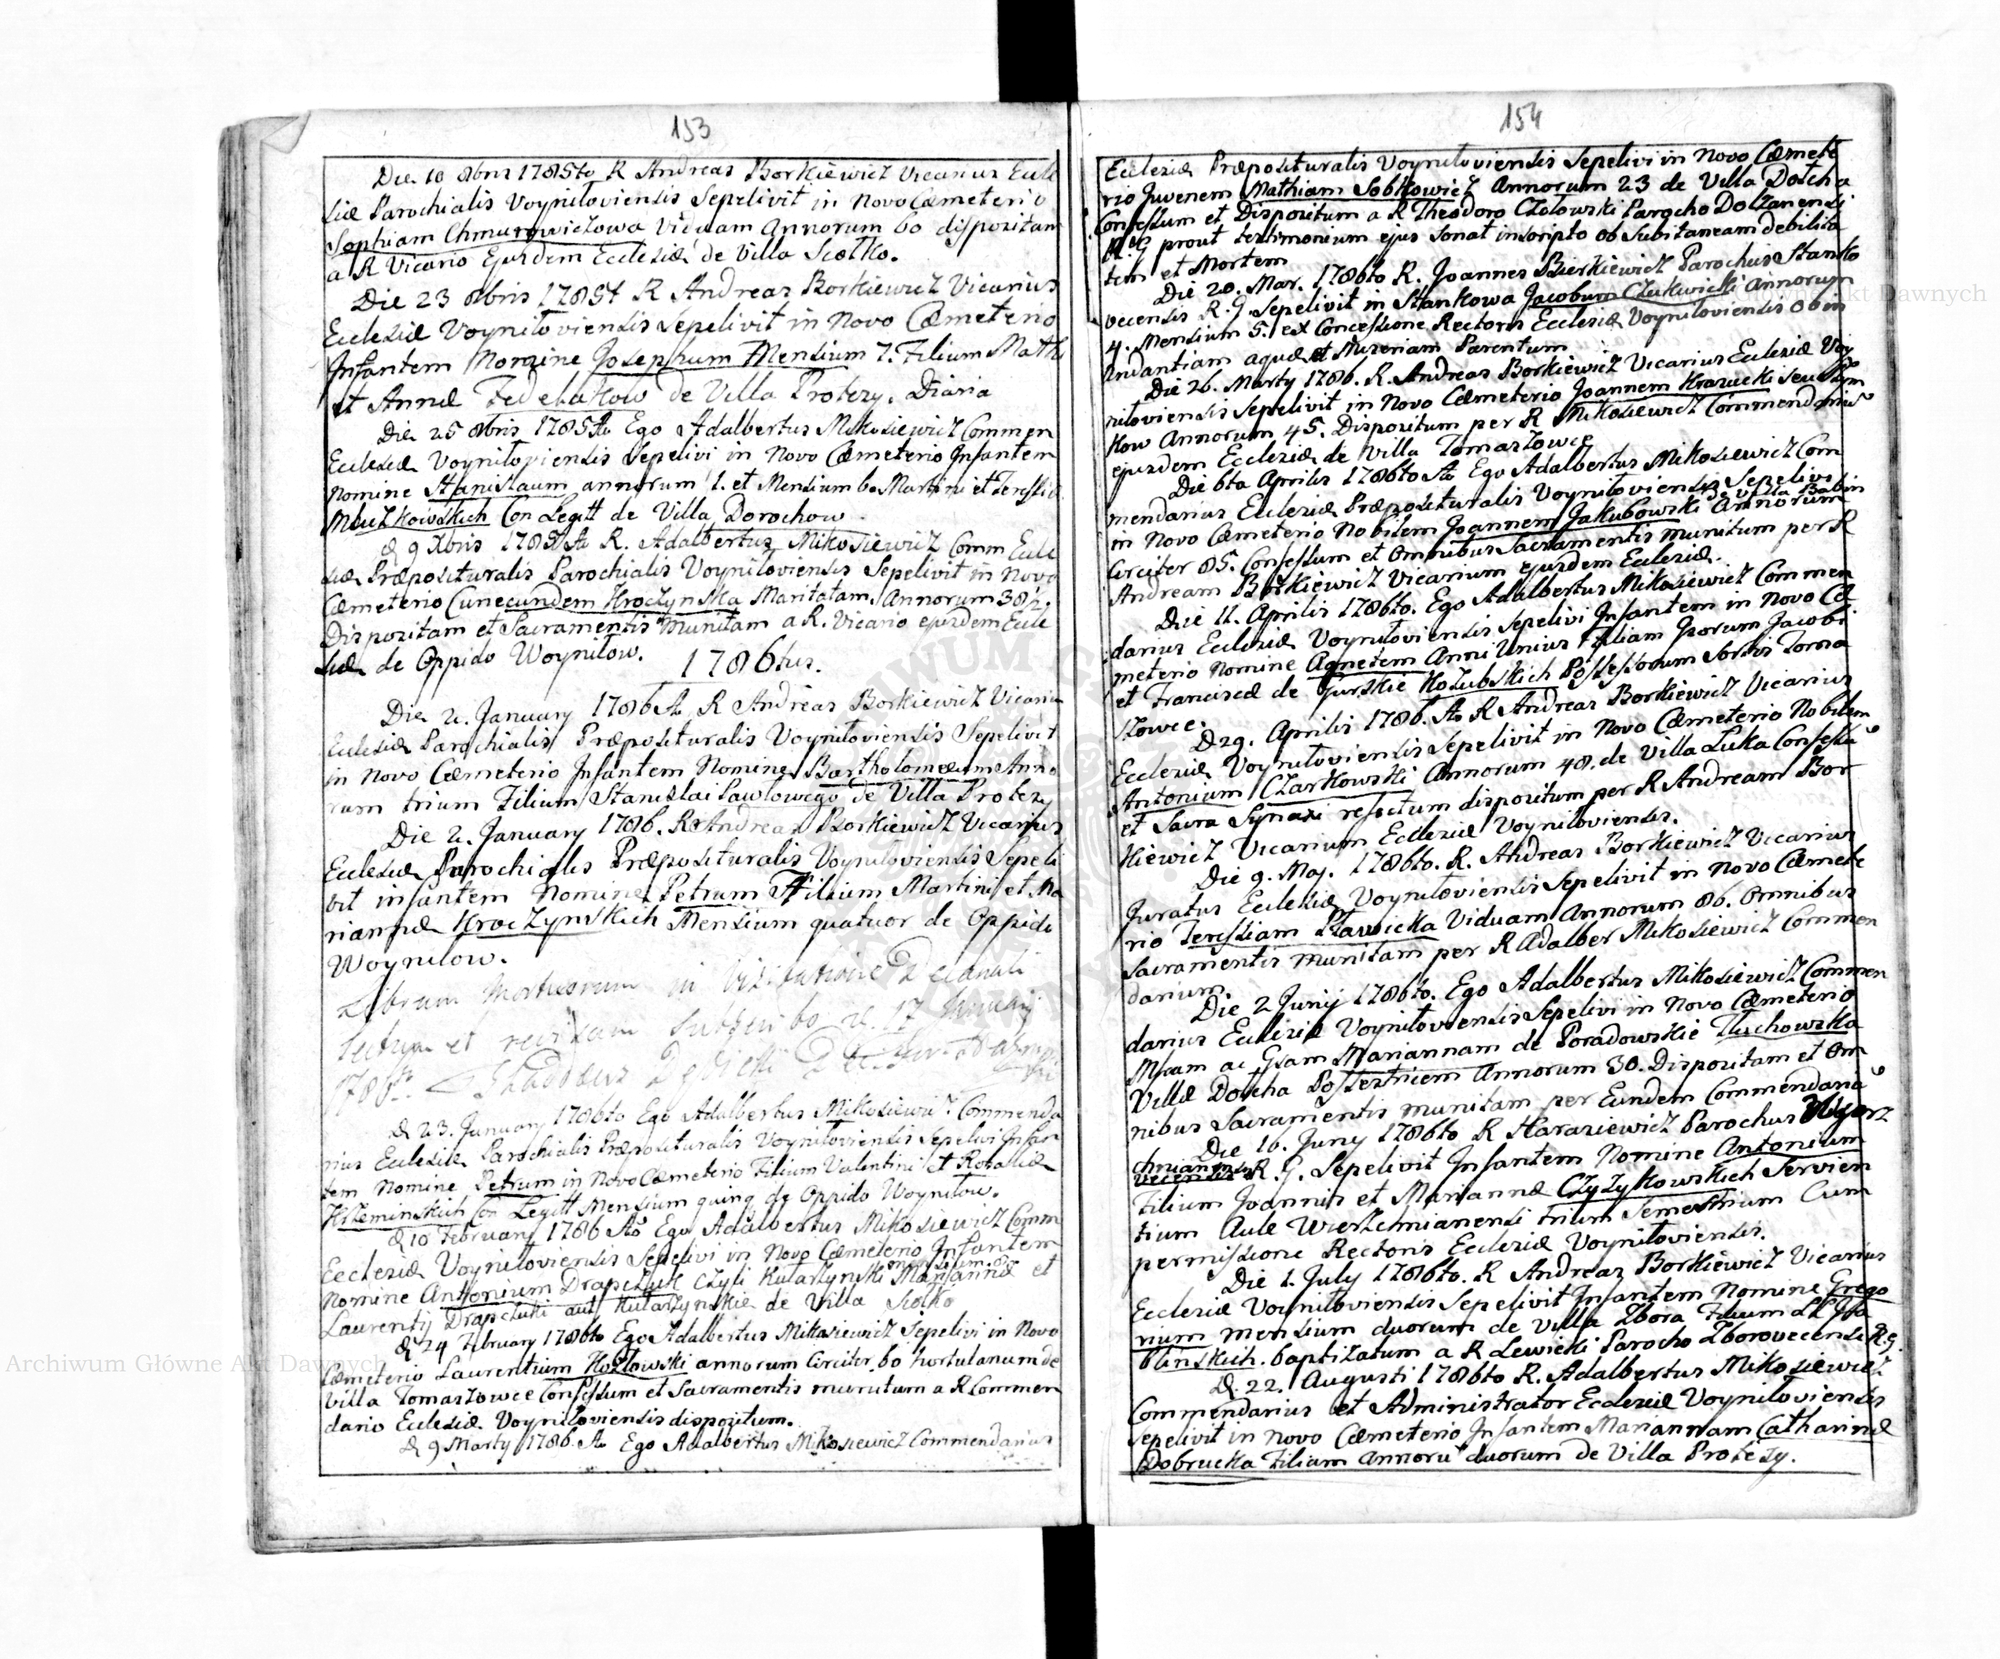 153
Die 10 8bris 1785to R Andreas Borkiewicz Vicarius Eccle
siæ Parochialis Voyniloviensis Sepelivit in Novo Cæmeterio
Sophiam Chmurowiczowa Viduam Annorum 60 dispozitam
a R Vicario Ejusdem Ecclesiæ de Villa Siołko.
Die 23 8bris 1785t R Andreas Borkiewicz Vicarius
Ecclesiæ Voyniloviensis Sepelivit in Novo Cæmeterio
Infantem Nomine Josephum Mensium 7. Filium Math
et Annæ Fedelakow de Villa Protezy. Diaria
Die 25 8bris 1785 Ao Ego Adalbertus Mikosiewicz Commen
Ecclesiæ Voyniloviensis Sepelivi in Novo Cæmeterio Infantem
Nomine Stanislaum annorum 1. et Mensium 6. Martini et Teressiæ
Con Legitt de Villa Dorochow
d 9 Xbris 1785 Ao R. Adalbertus Mikosiewicz Comm Eccle
siæ Præposituralis Parochialis Voyniloviensis Sepelivit in Novo
Cæmeterio Cunecundem Kroczynska Maritatam. Annorum 38½.
Dispozitam et Sacramentis Munitam a R. Vicario ejusdem Eccle
siæ de Oppido Woynilow.
1786tus.
Die 2. January 1786 Ao R Andreas Borkiewicz Vicarius
Ecclesiæ Parochialis Præposituralis Voyniloviensis Sepelivit
in Novo Cæmeterio Infantem Nomine Bartholomæum Anno
rum trium Filium Stanislai Pawlowego de Villa Protezy
Die 2. January 1786. R Andreas Borkiewicz Vicarius
Ecclesiæ Parochialis Præposituralis Voyniloviensis Sepeli
vit infantem Nomine Petrum Filium Martini et Ma
riannæ Kroczynskich Mensium quatuor de Oppido
Woynilow.
Librum Mortuorum in Visitatione Decanali
lectum et revisum subscribo d. 17 January
1786to
d 23. January 1786to Ego Adalbertus Mikosiewicz Commenda
rius Ecclesiæ Parochialis Præposituralis Voyniloviensis Sepelivi Infan
tem Nomine Petrum in Novo Cæmeterio Filium Valentini et Rosaliæ
Con Legitt Mensium quinq de Oppido Woynilow.
d 10 February 1786 Ao Ego Adalbertus Mikosiewicz Comm
Ecclesiæ Voyniloviensis Sepelivi in Novo Cæmeterio Infantem
Nomine Antonium Drapczuk czyli Kularzynski Mariannæ et
Laurentij Drapczuki aut Kularzynskie de Villa Siolko
d 24 February 1786to Ego Adalbertus Mikosiewicz Sepelivi in Novo
Cæmeterio Laurentium Kozlowski annorum Circiter 60 hortulanum de
Villa Tomaszowce Confessum et Sacramentis munitum a R Commen
dario Ecclesiæ Voyniloviensis dispozitum.
d 9 Marty 1786. Ao Ego Adalbertus Mikosiewicz Commendarius
154
Ecclesiæ Præposituralis Voyniloviensis Sepelivi in Novo Cæmete
rio Juvenem Mathiam Sobkowicz Annorum 23 de Villa Dołcha
Confessum et Dispozitum a R Theodoro Czolowski Parocho Dolzanensi
R: G prout testimonium ejus sonat inscripto ob Subitaneam debilita
tem et Mortem
Die 20. Mar. 1786to R. Joannes Bierkiewicz Parochus Stanko
vecensis R. G. Sepelivit in Stankowa Jacobum Czukwicki Annorum
4. Mensium 5. ex Concessione Rectoris Ecclesiæ Voyniloviensis ob in
undantiam aquæ et Miseriam Parentum
Die 26. Marty 1786. R. Andreas Borkiewicz Vicarius Ecclesiæ Voy
niloviensis Sepelivit in Novo Cæmeterio Joannem Krasucki seu
kow Annorum 45. Dispozitum per R Mikosiewicz Commendariũ
ejusdem Ecclesiæ de Villa Tomaszowce
Die 6ta Aprilis 1786to Ao Ego Adalbertus Mikosiewicz Com
mendarius Ecclesiæ Præposituralis Voyniloviensis Sepelivi
de Villa Babin
in Novo Cæmeterio Nobilem Joannem Jakubowski Annorum
Circiter 85. Confessum et Omnibus Sacramentis munitum per R
Andream Borkiewicz Vicarium ejusdem Ecclesiæ.
Die 11. Aprilis 1786to. Ego Adalbertus Mikosiewicz Commen
darius Ecclesiæ Voyniloviensis Sepelivi Infantem in Novo Cæ
meterio Nomine Agnetem Anni Unius Filiam Grorum Jacobi
et Franciscæ de Gurskie Kozubskich Possessorum Sortis Toma
szowce.
D 29. Aprilis 1786. Ao R Andreas Borkiewicz Vicarius
Ecclesiæ Voyniloviensis Sepelivit in Novo Cæmeterio Nobilem
Antonium Czarkowski Annorum 48. de Villa Luka Confessũ
et Sacra Synaxi refectum dispozitum per R Andream Bor
kiewicz Vicarium Ecclesiæ Voyniloviensis.
Die 9. Maj. 1786to. R. Andreas Borkiewicz Vicarius
Juratus Ecclesiæ Voyniloviensis Sepelivit in Novo Cæmete
rio Teressiam Stawicka Viduam Annorum 86. Omnibus
Sacramentis munitam per R Adalber Mikosiewicz Commen
darium.
Die 2 Junij 1786to. Ego Adalbertus Mikosiewicz Commen
darius Ecclesiæ Voyniloviensis Sepelivi in Novo Cæmeterio
Mcam ac Gsam Mariannam de Poradowskie Tluchowska
Villæ Dołcha Possestricem Annorum 30. Dispozitam et Om
nibus Sacramentis munitam per Eundem Commendariũ
Die 10. Juny 1786to R Harasiewicz Parochus
R. G. Sepelivit Infantem Nomine Antonium
Filium Joannis et Mariannæ Czyzykowskich Servien
tium Aulæ Wierzcmianensi trium Semestrium Cum
permissione Rectoris Ecclesiæ Voyniloviensis.
Die 1. July 1786to. R Andreas Borkiewicz Vicarius
Ecclesiæ Voyniloviensis Sepelivit Infantem Nomine Grego
rium mensium duorum de Villa Zbora Filium
blinskich. baptizatum a R Lewicki Parocho Zborovecensi R. G.
D. 22. Augusti 1786to R. Adalbertus Mikosiewicz
Commendarius et Administrator Ecclesiæ Voyniloviensis
Sepelivit in Novo Cæmeterio Infantem Mariannam Catharinæ
Dobrucka Filiam Annorũ duorum de Villa Protesy.
Archiwum Główne Akt Dawnych
Archiwum Główne Akt Dawnych